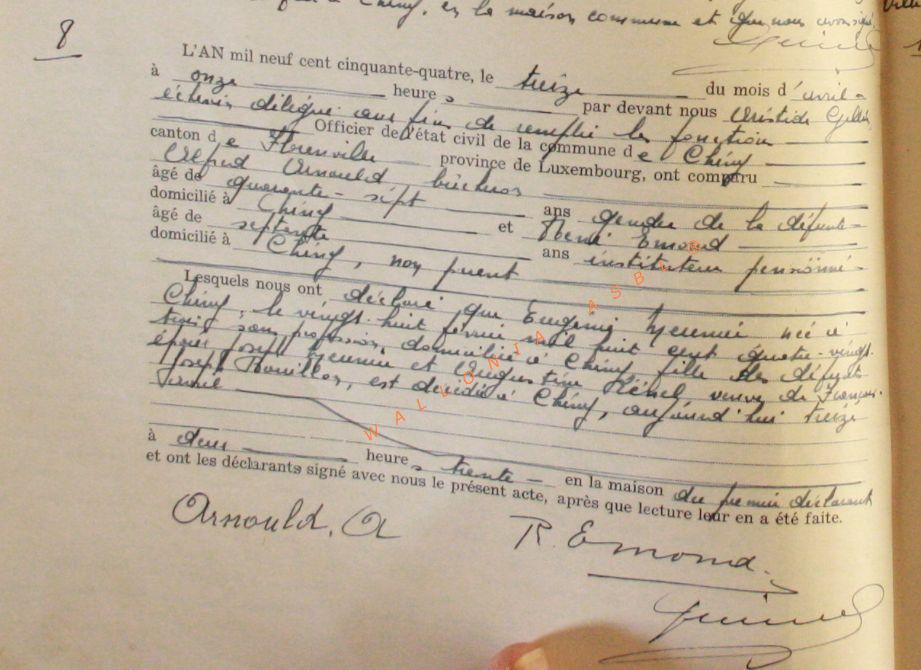 à Chiny, en la maison commune et que nous avons signé
8
L'AN mil neuf cent cinquante-quatre, le treize du mois d'avril
à onze heures par devant nous Aristide
échevin délégué aux fins de remplir les fonctions
Officier de l'état civil de la commune de Chiny
canton de Florenville province de Luxembourg, ont comparu
Alfred Arnould, bûcheron
âgé de quarante-sept ans gendre de la défunte
domicilié à Chiny et René Emond
âgé de septante ans instituteur pensionné
domicilié à Chiny, non parent
Lesquels nous ont déclaré que Eugénie Meunier née à
Chiny, le vingt huit février mil huit cent quatre-vingt-
trois sans profession, domiciliée à Chiny, fille des défunts
époux Joseph Meunier et Augustine veuve de François-
Joseph est décédée à Chiny, aujourd'hui treize
à deux heures trente en la maison du premier déclarant
et ont les déclarants signé avec nous le présent acte, après que lecture leur en a été faite.
Arnould, A
R. Emond
WALLONIA ASBL